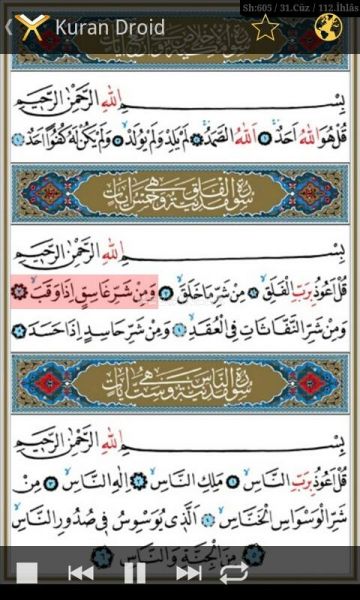 Sh:605 / 31.Cüz / 112.İhlâs
Kuran Droid
بِسْمِ اللهِ الرَّحْمٰنِ الرَّحِيمِ
قُلْ هُوَ اللهُ اَحَدٌ ﴿١﴾ اَللهُ الصَّمَدُ ﴿٢﴾ لَمْ يَلِدْ وَلَمْ يُولَدْ ﴿٣﴾ وَلَمْ يَكُنْ لَهُ كُفُوًا اَحَدٌ ﴿٤﴾
سورة الفلق مدنية وهى خمس ايات
بِسْمِ اللهِ الرَّحْمٰنِ الرَّحِيمِ
قُلْ اَعُوذُ بِرَبِّ الْفَلَقِ ﴿١﴾ مِنْ شَرِّ مَا خَلَقَ ﴿٢﴾ وَمِنْ شَرِّ غَاسِقٍ اِذَا وَقَبَ ﴿٣﴾
وَمِنْ شَرِّ النَّفَّاثَاتِ فِى الْعُقَدِ ﴿٤﴾ وَمِنْ شَرِّ حَاسِدٍ اِذَا حَسَدَ ﴿٥﴾
سورة الناس مدنية وهى ست ايات
بِسْمِ اللهِ الرَّحْمٰنِ الرَّحِيمِ
قُلْ اَعُوذُ بِرَبِّ النَّاسِ ﴿١﴾ مَلِكِ النَّاسِ ﴿٢﴾ اِلٰهِ النَّاسِ ﴿٣﴾ مِنْ
شَرِّ الْوَسْوَاسِ الْخَنَّاسِ ﴿٤﴾ اَلَّذِى يُوَسْوِسُ فِى صُدُورِ النَّاسِ
﴿٥﴾ مِنَ الْجِنَّةِ وَالنَّاسِ ﴿٦﴾